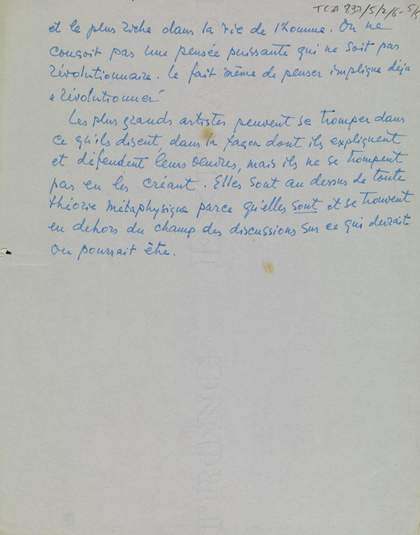 TGA 837/5/2/6 - 5/5
et le plus riche dans la vie de l'homme. On ne
conçoit pas une pensée puissante qui ne soit pas
révolutionnaire. Le fait même de penser implique déjà
"révolutionner"
Les plus grands artistes peuvent se tromper dans
ce qu'ils disent, dans la façon dont ils expliquent
et défendent leurs oeuvres, mais ils ne se trompent
pas en les créant. Elles sont au dessus de toute
théorie métaphysique parce qu'elles sont et se trouvent
en dehors du champ des discussions sur ce qui devrait
ou pourrait être.